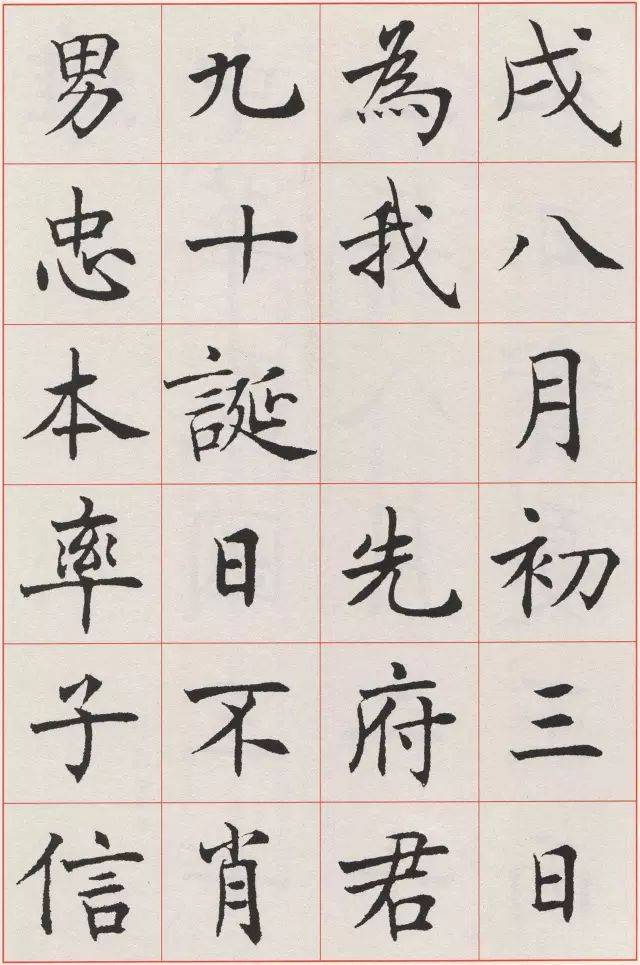 戌八月初三日
為我先府君
九十誕日不肖
男忠本率子信